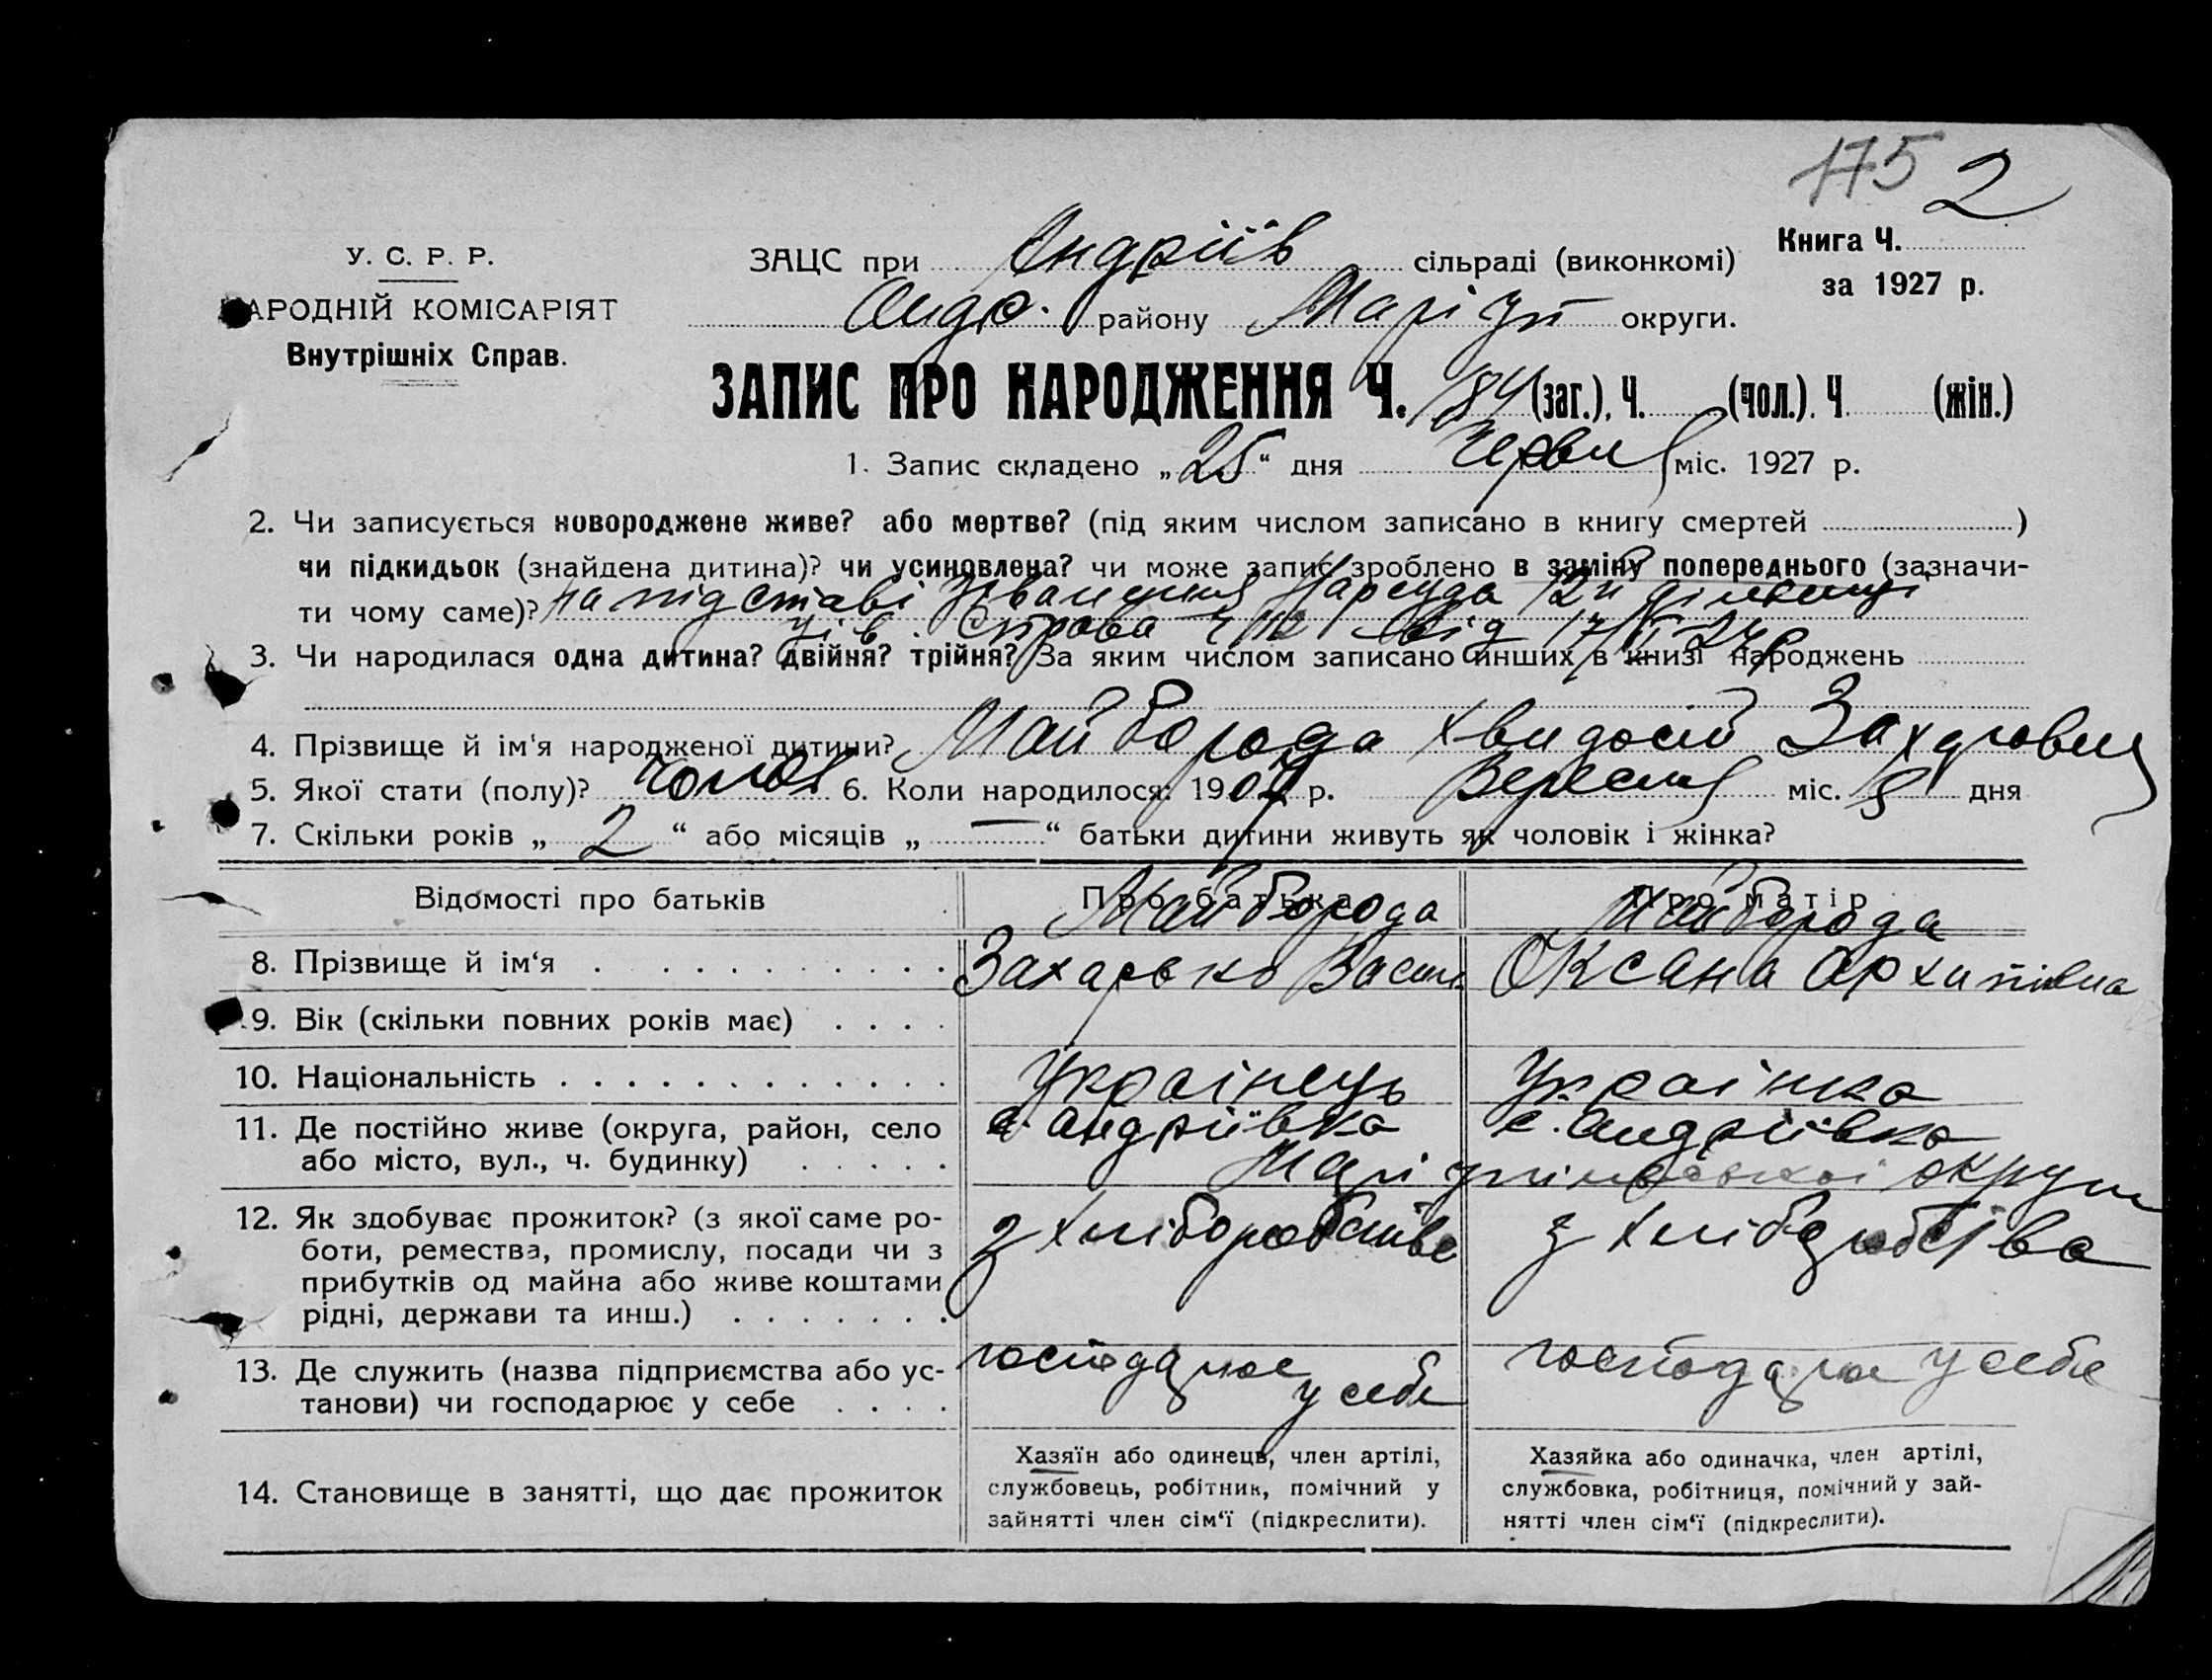 175 2
У. С. Р. Р.
НАРОДНІЙ КОМІСАРІЯТ
Внутрішніх Справ.
ЗАЦС при Андріїв сільраді (виконкомі)
Книга Ч.
за 1927 р.
Андр. району Маріуп округи.
ЗАПИС ПРО НАРОДЖЕННЯ Ч. 184 (заг.), Ч. (чол.). Ч (жін.)
1. Запис складено „25“ дня Червня міс. 1927 р.
2. Чи записується новороджене живе? або мертве? (під яким числом записано в книгу смертей )
чи підкидьок (знайдена дитина)? чи усиновлена? чи може запис зроблено в заміну попереднього (зазначи-
ти чому саме)? на підставі Нарсуда 12й
ців. Справа від 17
3. Чи народилася одна дитина? двійня? трійня? За яким числом записано инших в книзі народжень
4. Прізвище й ім'я народженої дитини? Майборода Хвидосій Захарович
5. Якої стати (полу)? чолов 6. Коли народилося: 190 р. Вересня міс. 8 дня
7. Скільки років „ 2 “ або місяців „ — “ батьки дитини живуть як чоловік і жінка?
Відомості про батьків Про батька Про матір
Майборода Майборода
8. Прізвище й ім‘я Захарько Васил Оксана Архипівна
9. Вік (скільки повних років має)
10. Національність Українець Українка
11. Де постійно живе (округа, район, село с. Андріївка с. Андріївка
або місто, вул., ч. будинку) Маріюпільської округи
12. Як здобуває прожиток? (з якої саме ро- з хліборобства з хліборобства
боти, ремества, промислу, посади чи з
прибутків од майна або живе коштами
рідні, держави та инш.)
13. Де служить (назва підприємства або ус- господарює у себе господарює у себе
танови) чи господарює у себе
14. Становище в занятті, що дає прожиток
Хазяїн або одинець, член артілі,
службовець, робітник, помічний у
зайнятті член сім‘ї (підкреслити).
Хазяйка або одиначка, член артілі,
службовка, робітниця, помічний у зай-
нятті член сім‘ї (підкреслити).